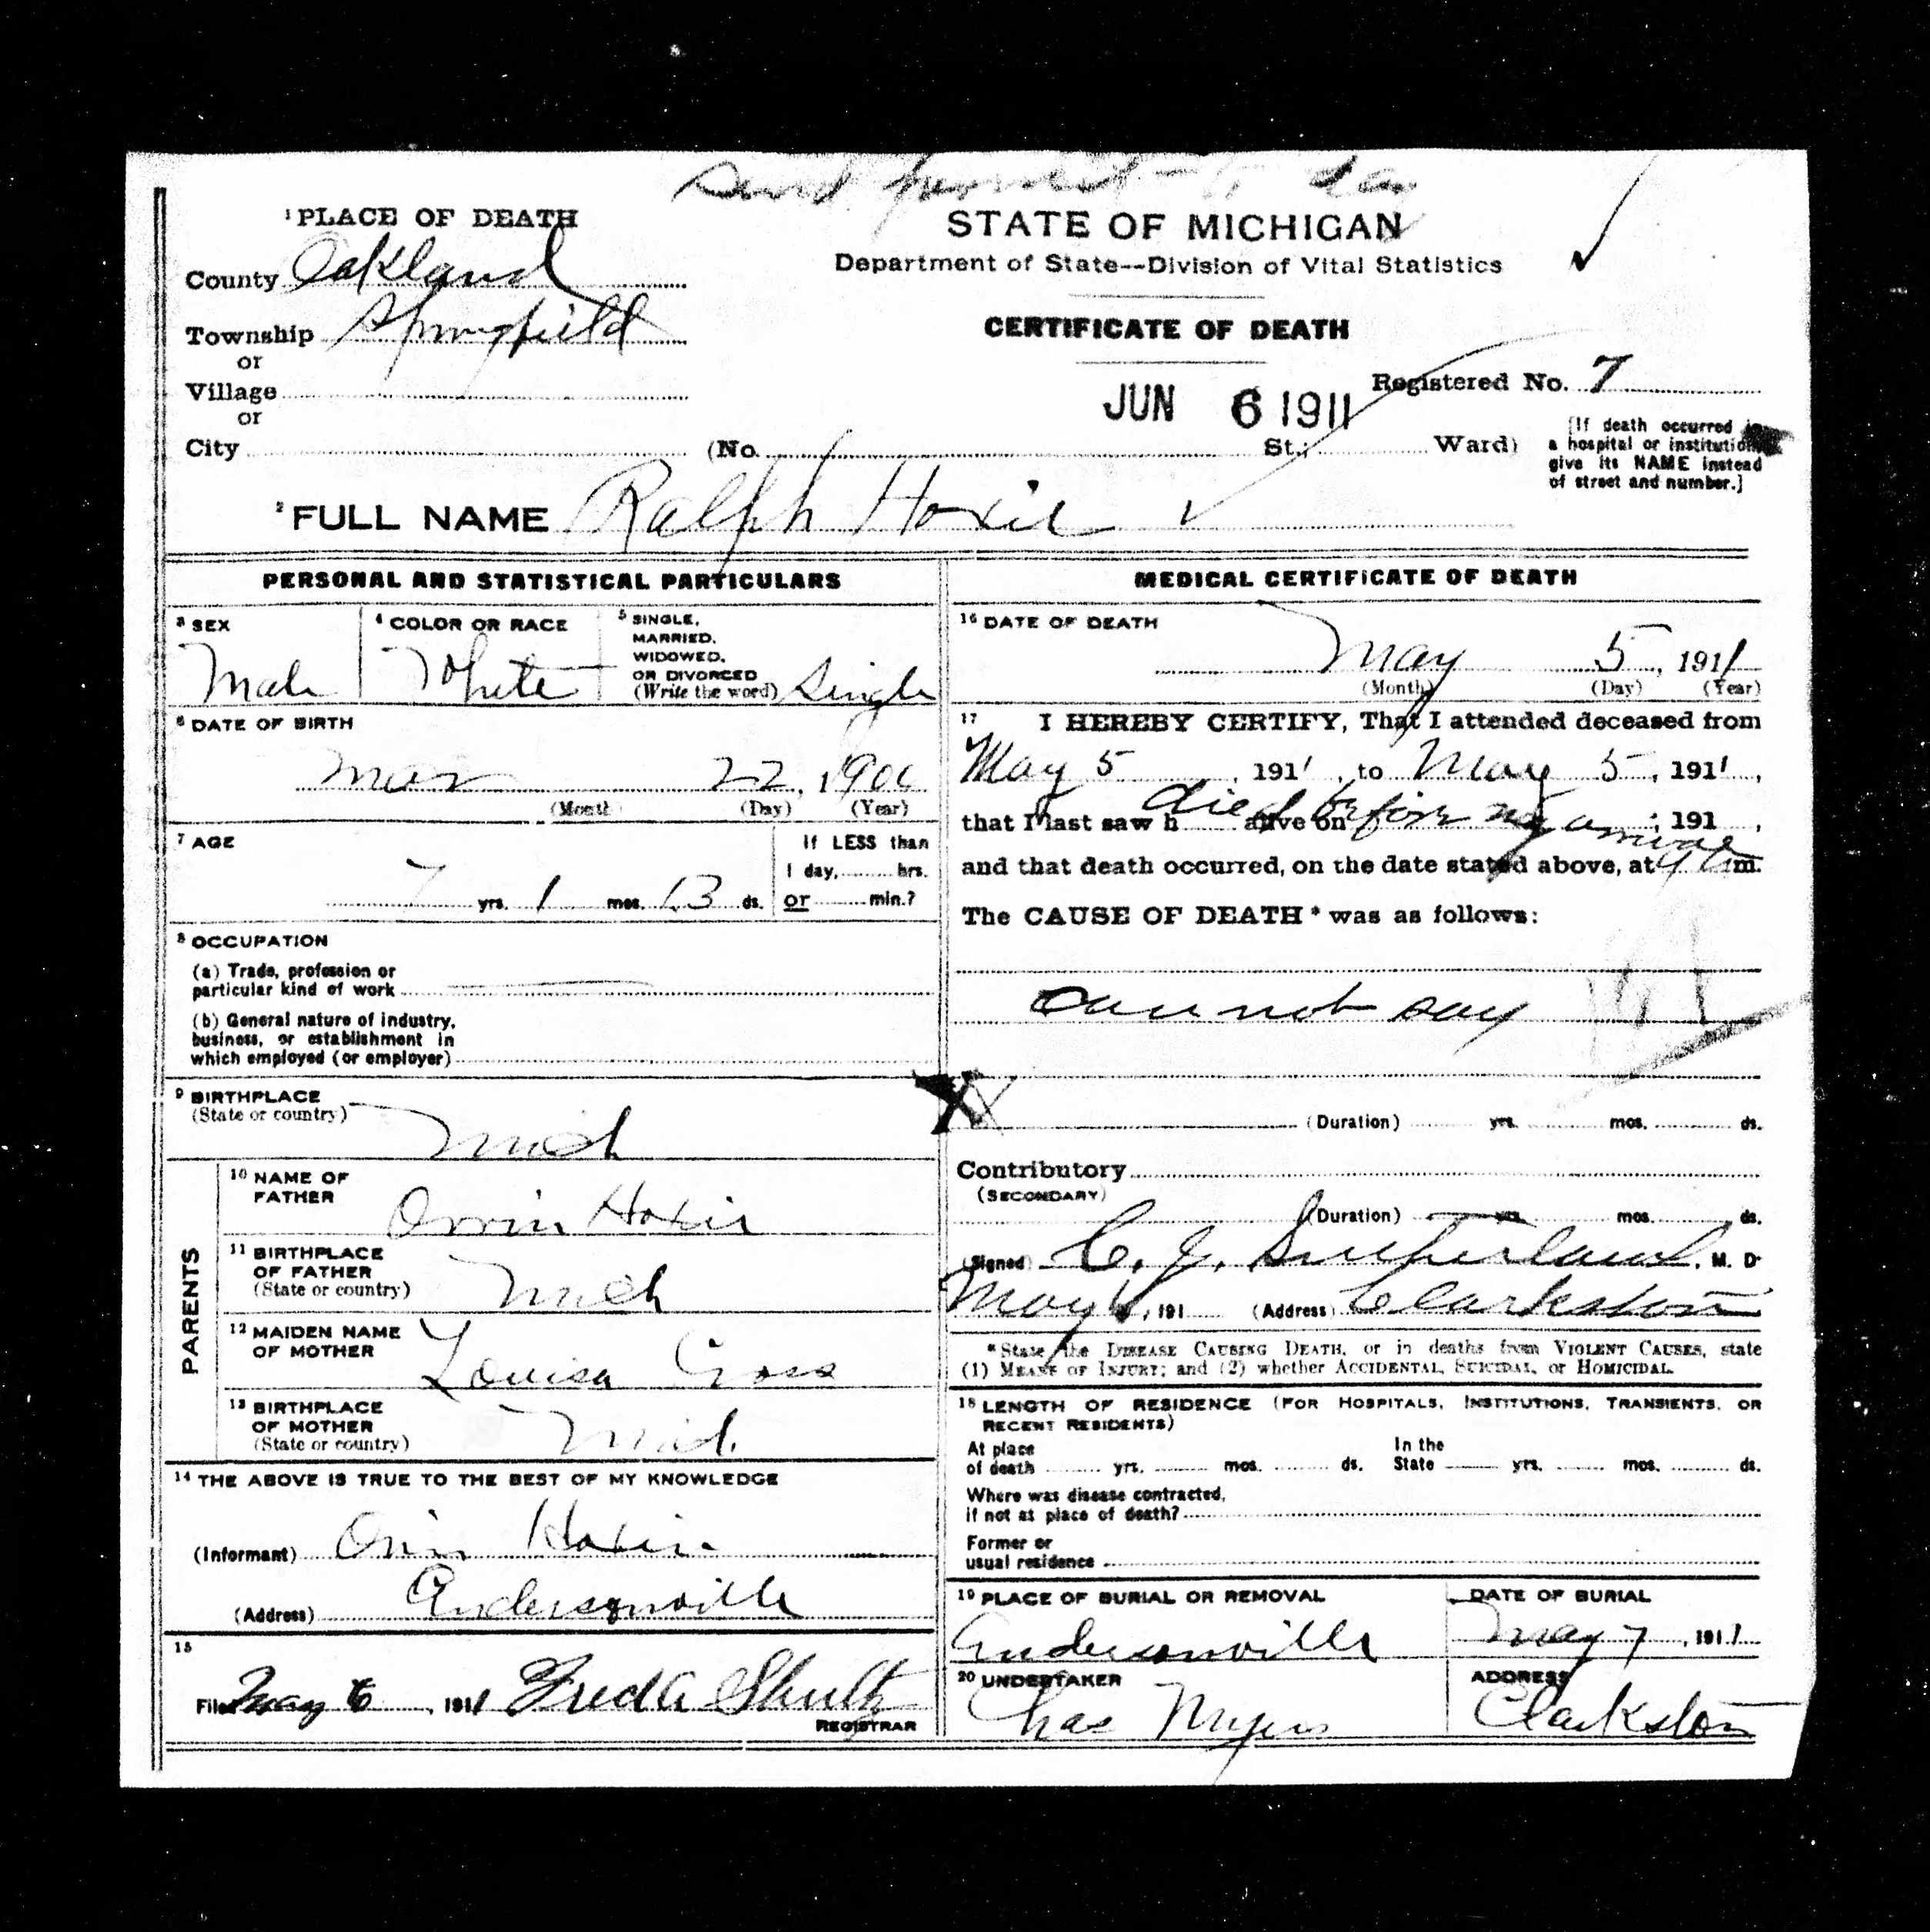 Send permit to day
¹PLACE OF DEATH
STATE OF MICHIGAN
Department of State--Division of Vital Statistics
County Oakland
CERTIFICATE OF DEATH
Township Springfield
or
Village
Registered No. 7
or
JUN 6 1911
City (No. St.; Ward)
[If death occurred in
a hospital or institution
give its NAME instead
of street and number.]
²FULL NAME Ralph Hoxie
PERSONAL AND STATISTICAL PARTICULARS
³ SEX
Male
⁴ COLOR OR RACE
White
⁵ SINGLE,
MARRIED,
WIDOWED,
OR DIVORCED
(Write the word) Single
⁶ DATE OF BIRTH
Mar 22, 190
(Month) (Day) (Year)
⁷ AGE
7 yrs. 1 mos. 13 ds.
If LESS than
1 day, hrs.
or min.?
⁸ OCCUPATION
(a) Trade, profession or
particular kind of work
(b) General nature of industry,
business, or establishment in
which employed (or employer)
⁹ BIRTHPLACE
(State or country)
Mich
PARENTS
¹⁰ NAME OF
FATHER
Orrin Hoxie
¹¹ BIRTHPLACE
OF FATHER
(State or country)
Mich
¹² MAIDEN NAME
OF MOTHER
Louisa Cross
¹³ BIRTHPLACE
OF MOTHER
(State or country)
Mich.
¹⁴ THE ABOVE IS TRUE TO THE BEST OF MY KNOWLEDGE
(Informant) Orin Hoxie
(Address) Andersonville
¹⁵
Filed May 6, 1911 Freda Shultz
REGISTRAR
MEDICAL CERTIFICATE OF DEATH
¹⁶ DATE OF DEATH
May 5, 1911
(Month) (Day) (Year)
¹⁷ I HEREBY CERTIFY, That I attended deceased from
May 5, 1911, to May 5, 1911,
died before my arrival
that I last saw h alive on , 191 ,
and that death occurred, on the date stated above, at m.
The CAUSE OF DEATH * was as follows:
can not say
X
(Duration) yrs. mos. ds.
Contributory
(SECONDARY)
(Duration) yrs. mos. ds.
(Signed) C. J. Sutherland, M. D.
May 6, 191 (Address) Clarkston
*State the DISEASE CAUSING DEATH, or in deaths from VIOLENT CAUSES, state
(1) MEANS OF INJURY; and (2) whether ACCIDENTAL, SUICIDAL, or HOMICIDAL.
¹⁸ LENGTH OF RESIDENCE (FOR HOSPITALS, INSTITUTIONS, TRANSIENTS, OR
RECENT RESIDENTS)
At place
of death yrs. mos. ds.
In the
State yrs. mos. ds.
Where was disease contracted,
if not at place of death?
Former or
usual residence
¹⁹ PLACE OF BURIAL OR REMOVAL
Andersonville
DATE OF BURIAL
May 7, 1911
²⁰ UNDERTAKER
Chas Myers
ADDRESS
Clarkston